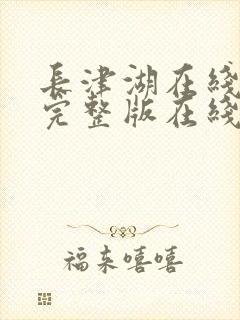 長津湖在綫
完整版在綫
福来嘻嘻